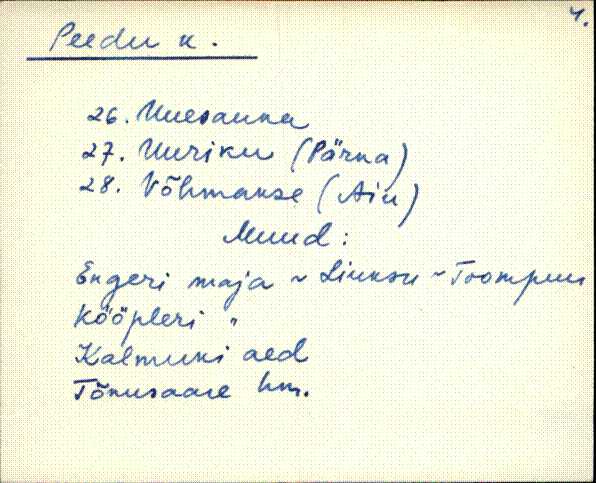 4.
Peedu k.
26. Uuesauna
27. Uuriku (Pärna)
28. Võhmanse (Aiu)
Muud:
Engeri maja ~ Liuksu ~ Toompuu
Kööpleri "
Kalmuki aed
Tõnusaare hm.